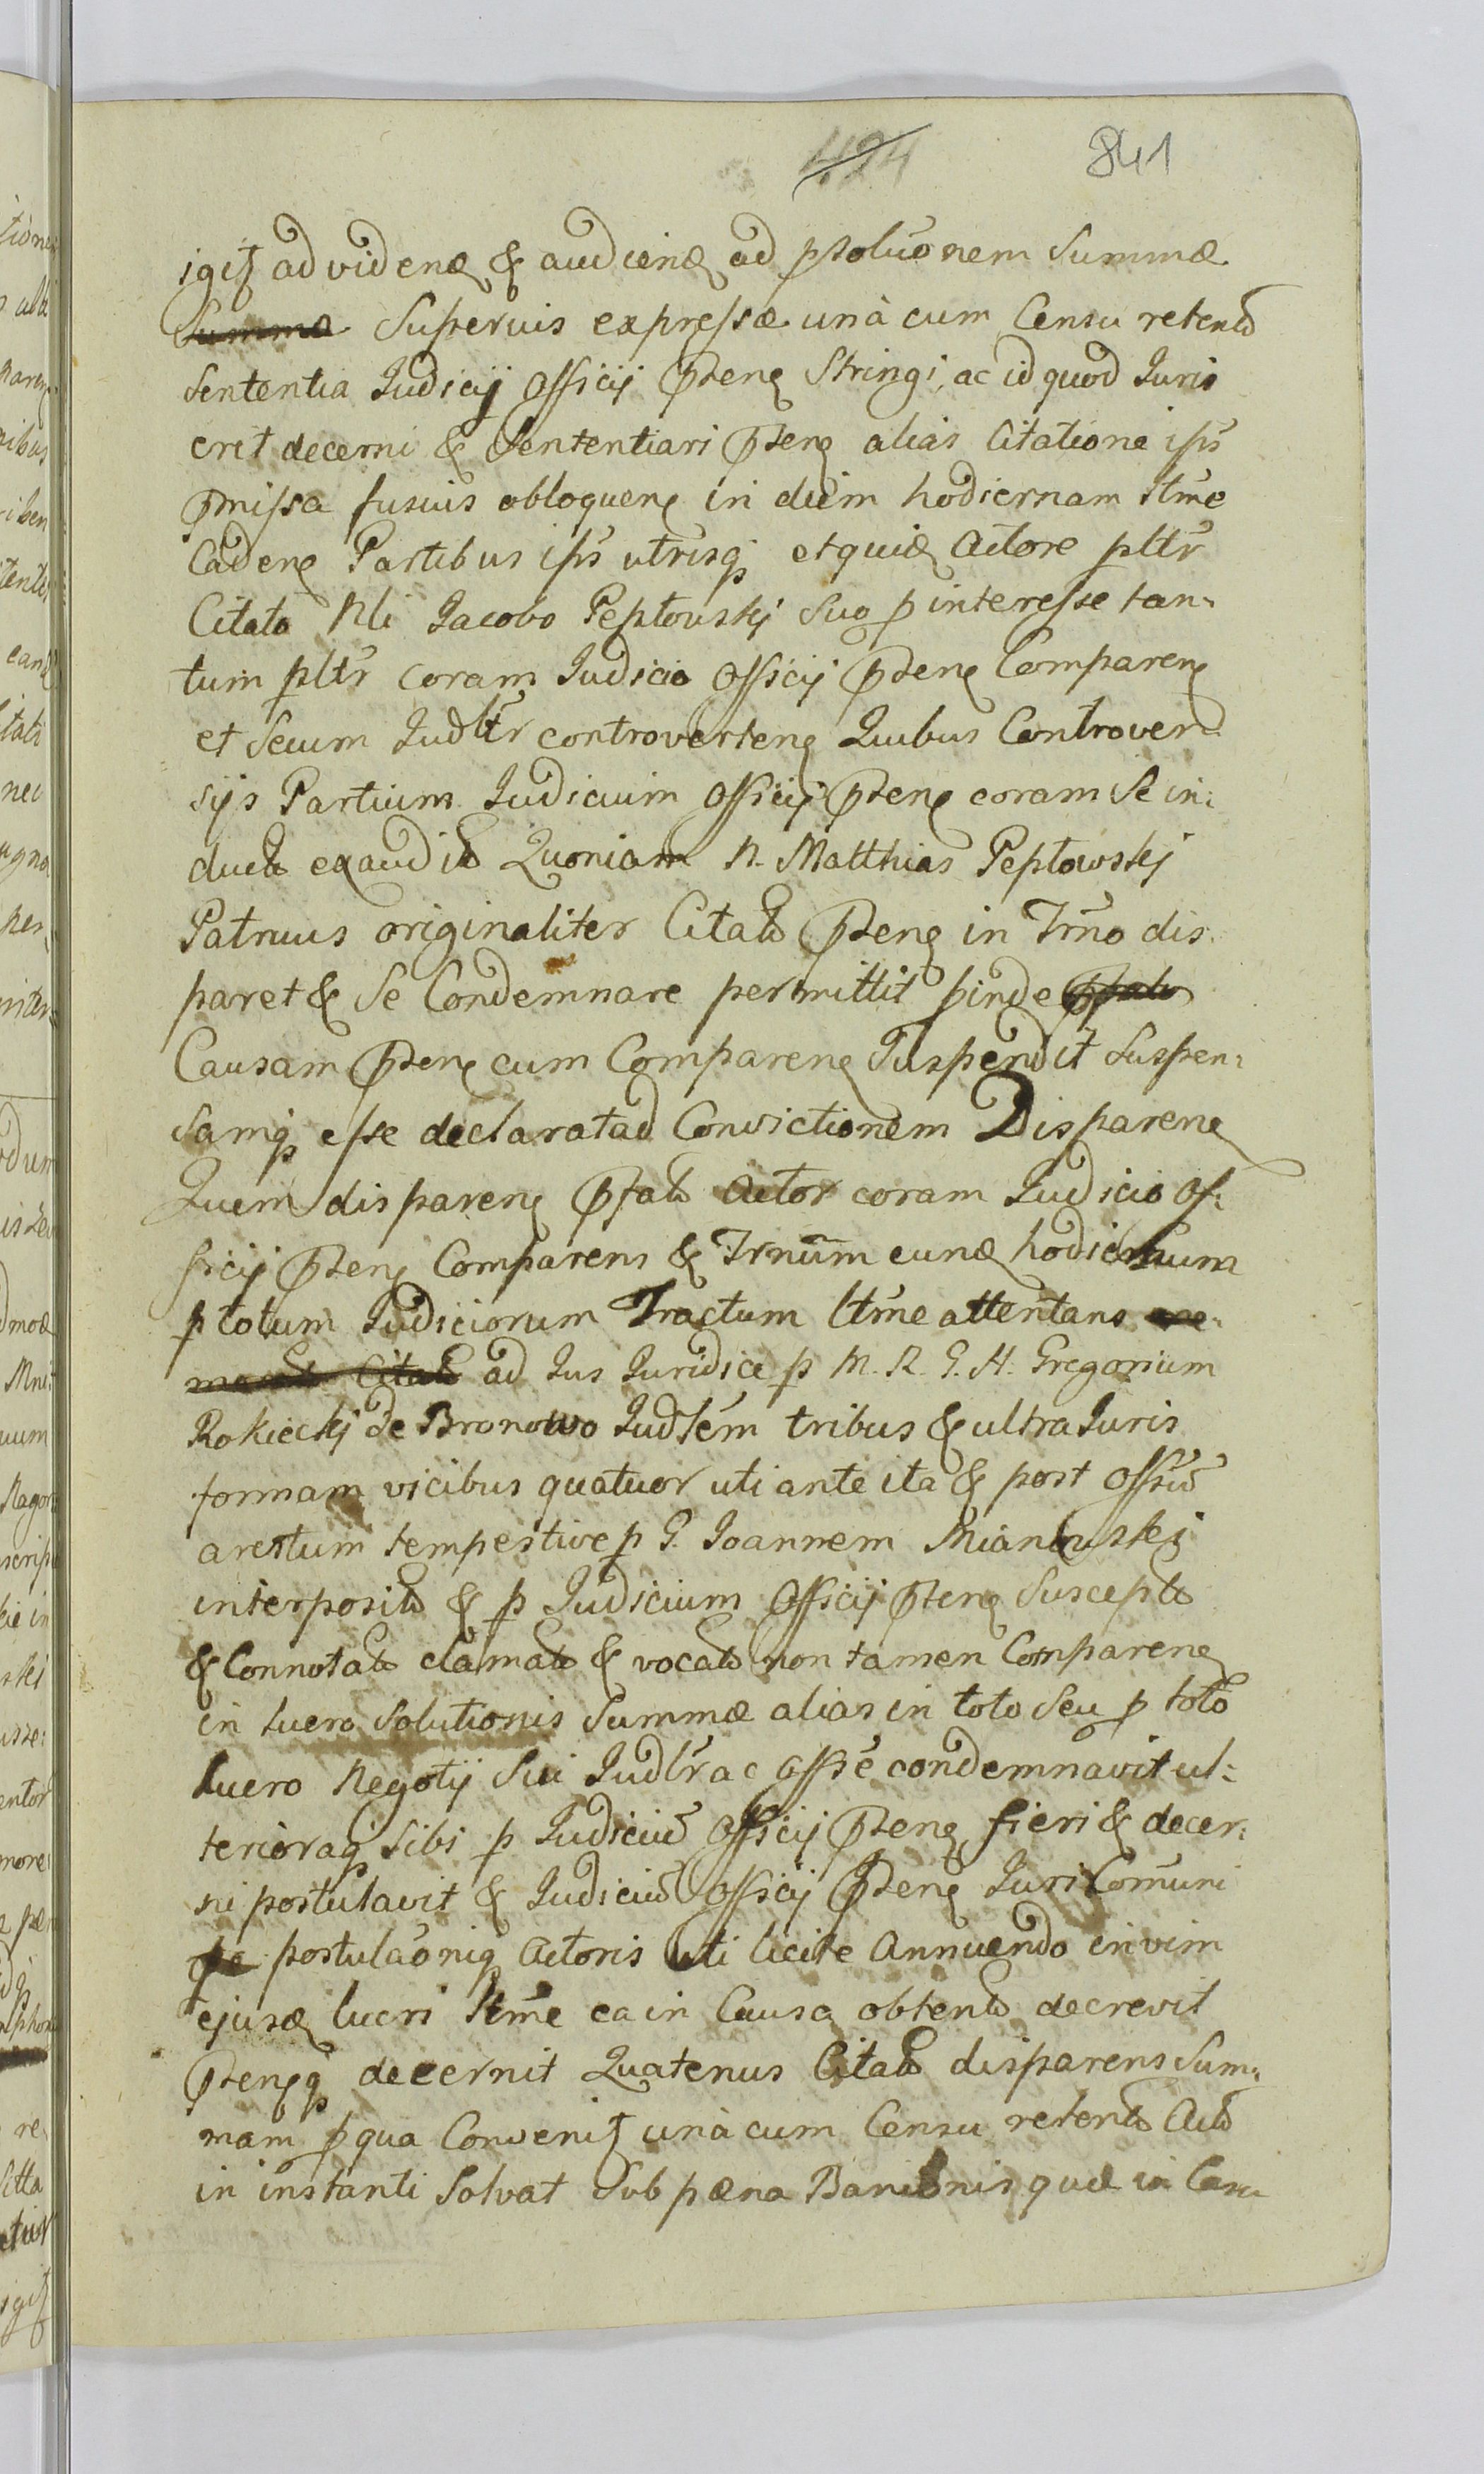 424 841
igitꝛ ad videnꝺ & audienꝺ ad ꝑsoluōnem Summæ
Summæ Superius expressæ unà cum Censu retento
Sententia Judicij Officij p̄senꝭ Stringi, ac id quod Juris
erit decerni & Sententiari p̄senꝭ alias Citatione ips̄
p̄missa fusius obloquenꝭ in diem hodiernam lt̄me
Cadenꝭ Partibus ips̄ utrisqꝫ et quidꝫ Actore pltr̄
Citato Nli Jacobo Peptouskj suo ꝑ interesse tan-
tum pltr̄ coram Judicio Officij p̄senꝭ Comparenꝭ
et Secum Judltr̄ controvertenꝭ Quibus Controver-
sijs Partium Judicium Officij p̄senꝭ coram se in-
ductis exauditis Quoniam N. Matthias Peptowskj
Patruus originaliter Citatus p̄senꝭ in Trno dis-
paret & Se Condemnare permittit ꝑinde p̄fatus
Causam p̄senꝭ cum Comparenꝭ Suspendit Suspen-
samqꝫ esse declarat ad Convictionem Disparenꝭ
Quem disparenꝭ p̄fatus Actor coram Judicio Of-
ficij p̄senꝭ Comparens & Trnūm eundꝫ hodiernum
ꝑ totum Judiciorum Tractum lt̄me attentans
Citatus ad Jus Juridice ꝑ M. R. G. H. Gregorium
Rokieckj de Bronowo Judlēm tribus & ultra Juris
formam vicibus quatuor uti ante ita & post Offīū
arestum tempestive ꝑ G. Joannem Mianouskj
interpositū & ꝑ Judicium Officij p̄senꝭ Susceptū
& Connotatū clamatū & vocatū non tamen Comparenꝭ
in lucro Solutionis Summæ alias in toto Seu ꝑ toto
lucro Negotij Sui Judlr̄ ac Offē condemnavit ul-
terioraqꝫ Sibi ꝑ Judiciū Officij p̄senꝭ fieri & decer-
ni postulavit & Judiciū Officij p̄senꝭ Juri Com̄uni
postulaōniqꝫ Actoris uti licite Annuendo in vim
ejusdꝫ lucri lt̄me ea in Causa obtentū decrevit
p̄senꝭqꝫ decernit Quatenus Citatus disparens Sum-
mam ꝑ qua Convenitꝛ unà cum Censu retento Actō
in instanti Solvat Sub pæna Banitionis quæ in Casu